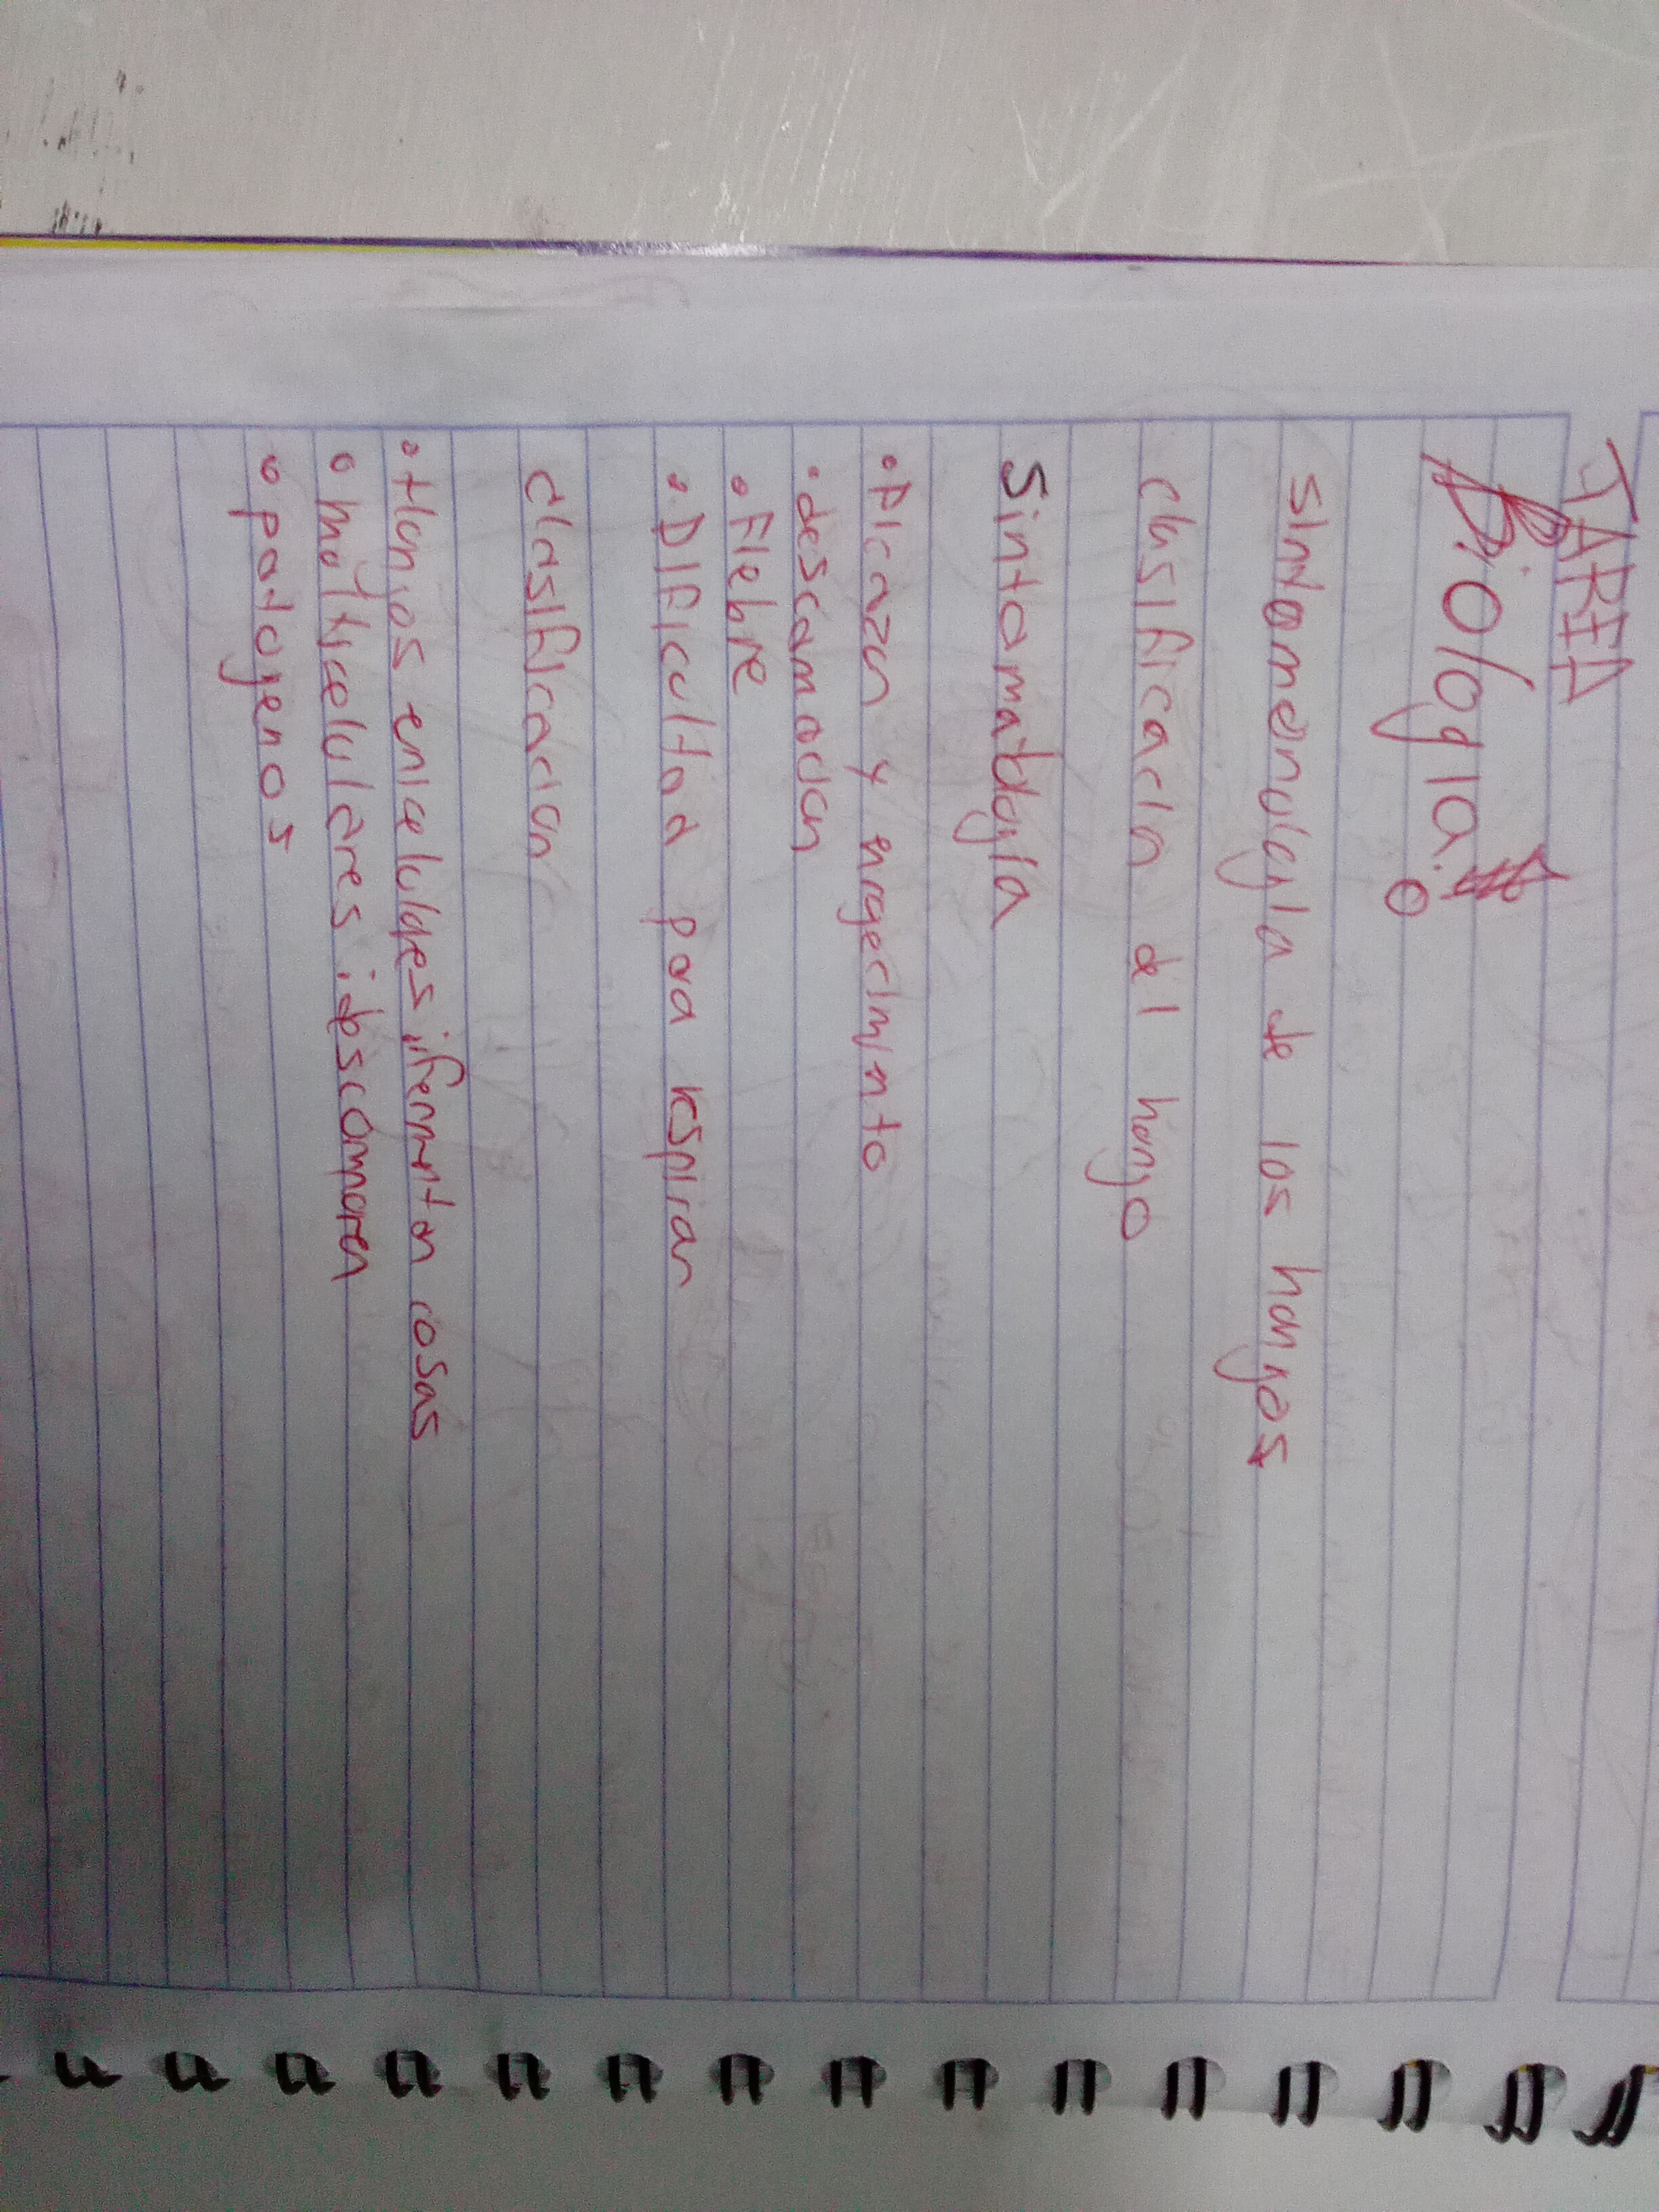 TAREA
Biologia
sintomonologia de los hongos
clasificacin del hongo
Sintomatologia
• Picazon y enrgecimiento
• descamacion
• Fiebre
• Dificultad para respirar
clasificacion
• Hongos enicelulares; fermentan cosas
• multicelulares; descomponen
• patogenos